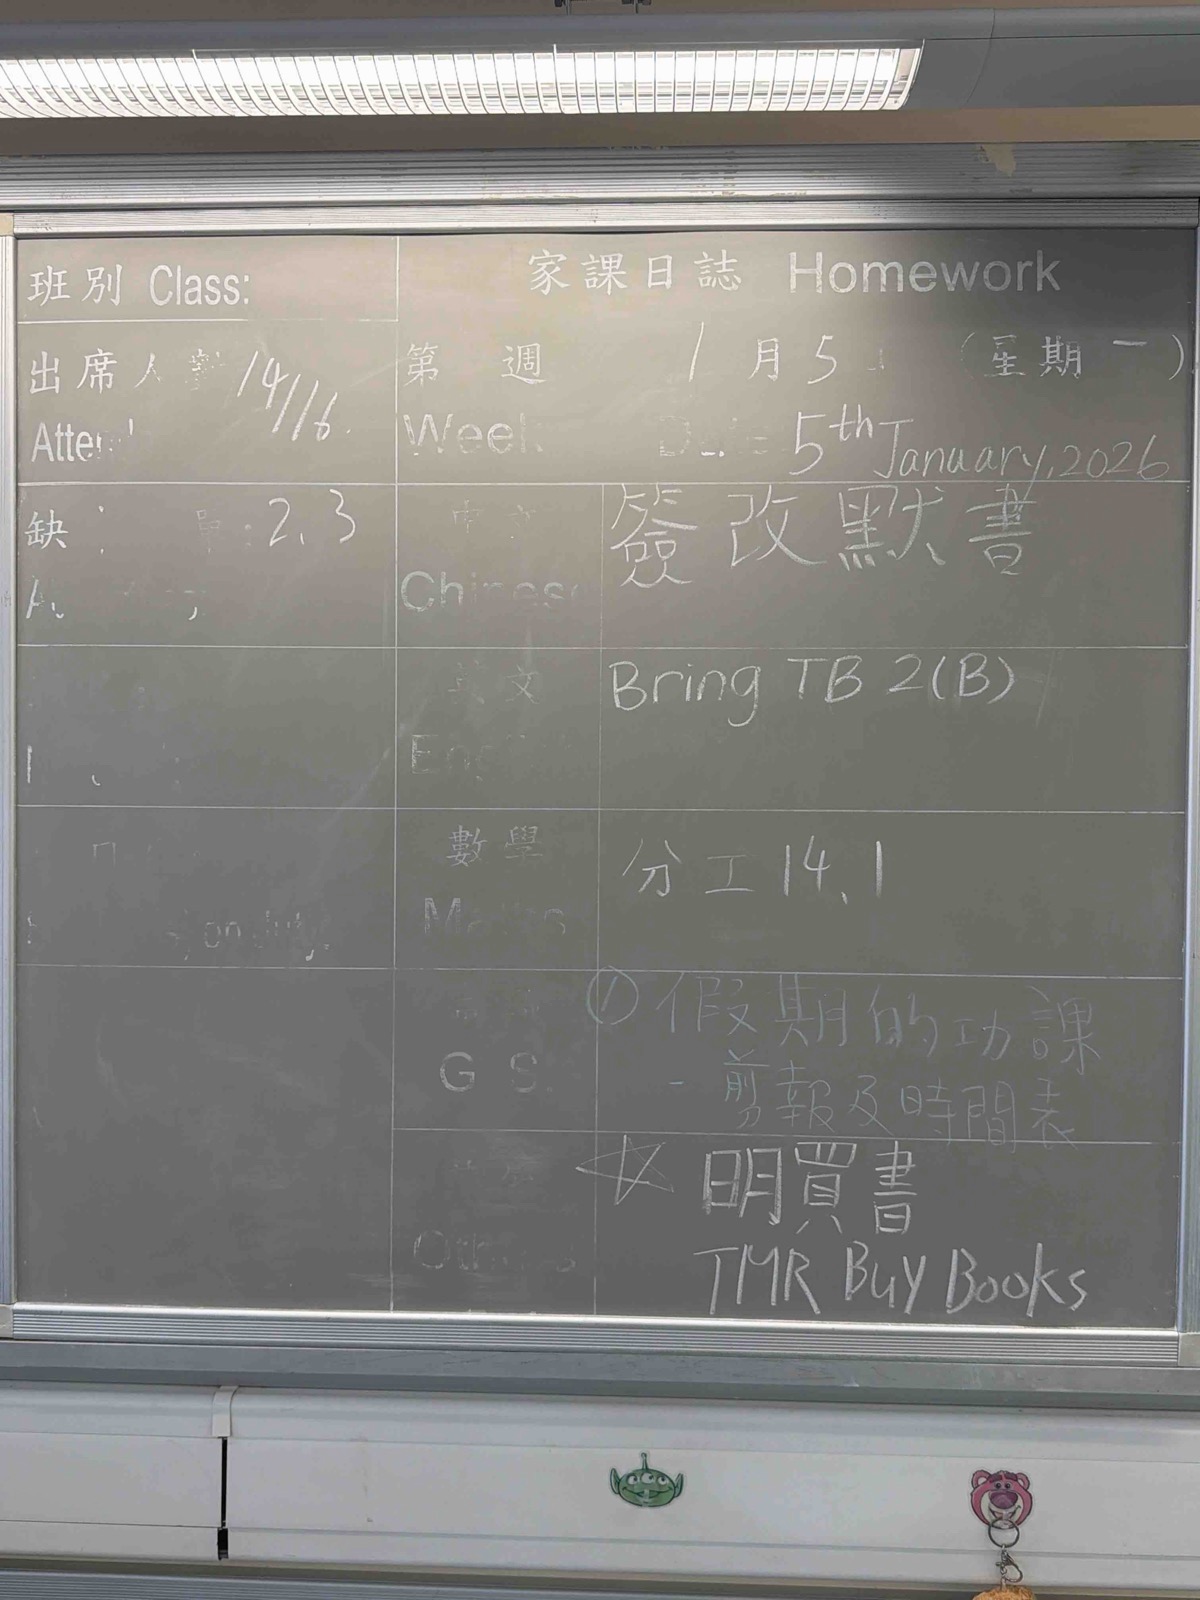 班別 Class:
家課日誌 Homework
出席人數 14/16.
第 週 1月5 (星期一)
Week Date 5th January, 2026
缺 單: 2、3
中文 簽改默書
Chinese
文 Bring TB 2(B)
數學 分工14、1
Maths
① 假期的功課
G.S. - 剪報及時間表
☆ 明買書
Others TMR Buy Books